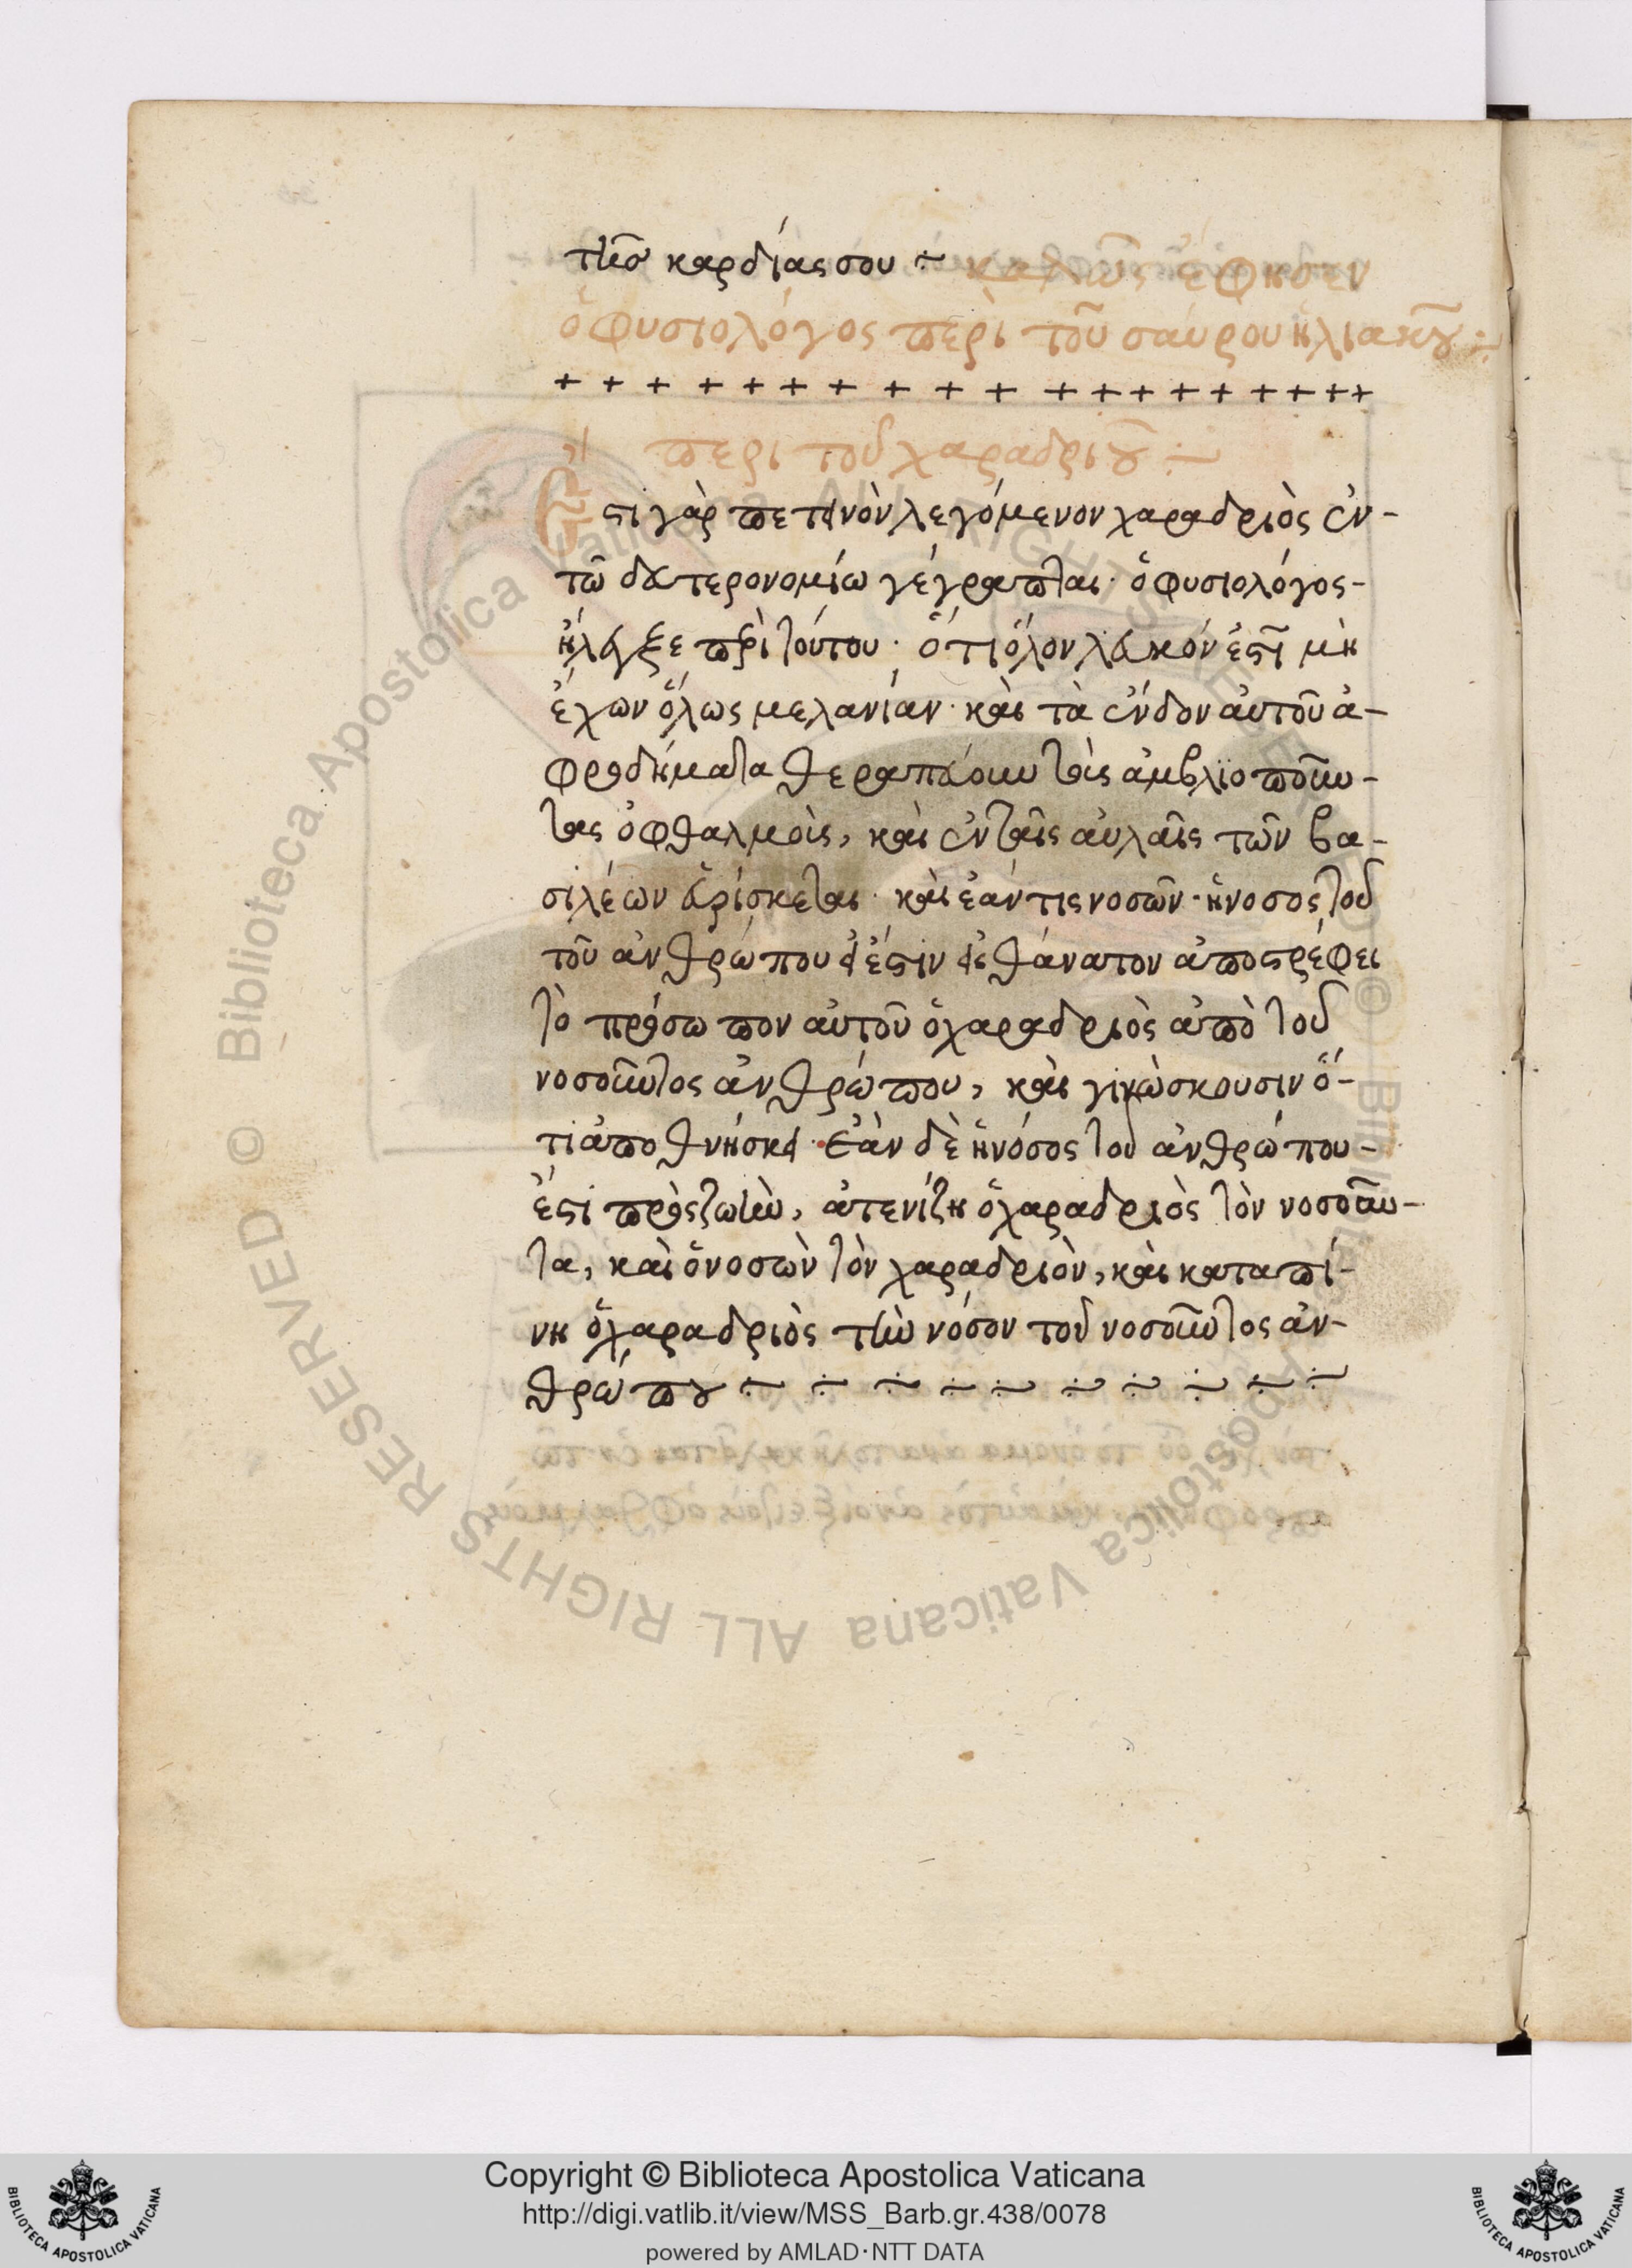 τῆς καρδίας σου ÷ καλῶς ἔφησεν
ὁ φυσιολόγος περὶ τοῦ σαύρου ἡλιακοῦ ÷
+ + + + + + + + + + + + + + + + + +
περι τοῦ χαραδριοῦ ÷
Ἔστι γὰρ πετηνὸν λεγόμενον χαραδριὸς ἐν-
τῶ δευτερονομίω γέγραπται· ὁ φυσιολόγος-
ἔλεξε περὶ τούτου· ὅτι ὅλον λευκόν ἐστὶ μὴ
ἔχων ὅλως μελανίαν· καὶ τὰ ἔνδον αὐτοῦ ἀ-
φροδήματα θεραπεύουν τοὺς ἀμβλϊοποῦν-
τας ὀφθαλμοὺς, καὶ ἐν ταῖς αὐλαῖς τῶν βα-
σιλέων εὑρίσκεται· καὶ ἐάν τις νοσῶν· ἡ νοσος τοῦ
τοῦ ἀνθρώπου εἰ ἔστιν εἰς θάνατον ἀποστρέφει
τὸ πρόσωπον αὐτοῦ ὁ χαραδριὸς ἀπὸ τοῦ
νοσοῦντος ἀνθρώπου, καὶ γινώσκουσιν ὅ-
τι ἀποθνήσκει· Ἐὰν δὲ ἡ νόσος τοῦ ἀνθρώπου-
ἔστι πρὸς ζωὴν, ἀτενίζη ὁ χαραδριὸς τὸν νοσοῦν-
τα, καὶ ὁ νοσὼν τὸν χαραδριὸν, καὶ καταπί-
νη ὁ χαραδριὸς τὴν νόσον τοῦ νοσοῦντος ἀν-
θρώπου ÷ ÷ ÷ ÷ ÷ ÷ ÷ ÷ ÷ ÷
Copyright © Biblioteca Apostolica Vaticana
http://digi.vatlib.it/view/MSS_Barb.gr.438/0078
powered by AMLAD·NTT DATA
BIBLIOTECA APOSTOLICA VATICANA
BIBLIOTECA APOSTOLICA VATICANA
© Biblioteca Apostolica Vaticana ALL RIGHTS RESERVED
© Biblioteca Apostolica Vaticana ALL RIGHTS RESERVED